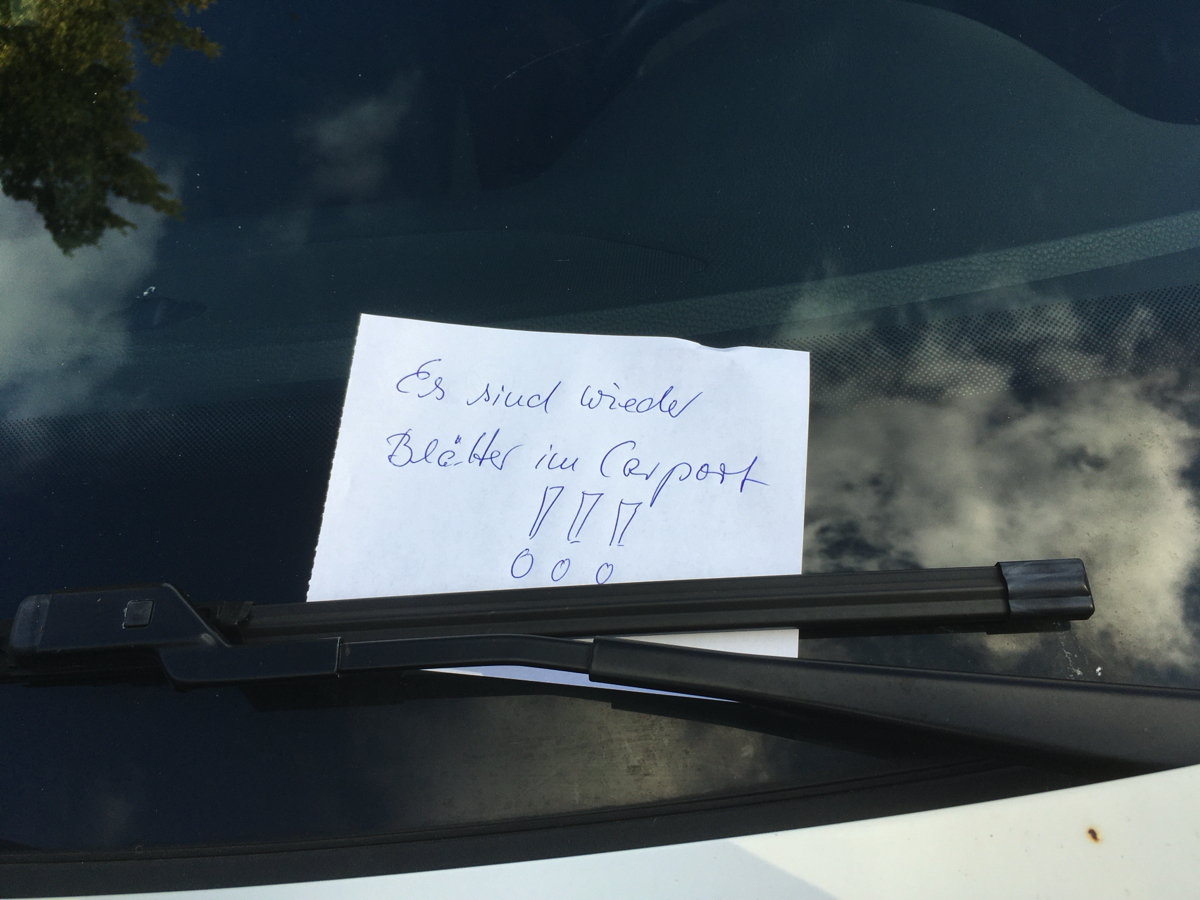 Es sind wieder
Blätter im Carport
!!!